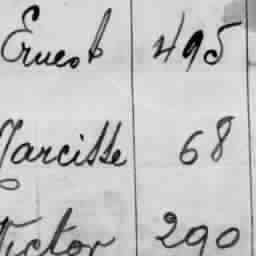 Ernest 495
Narcisse 68
Victor 290